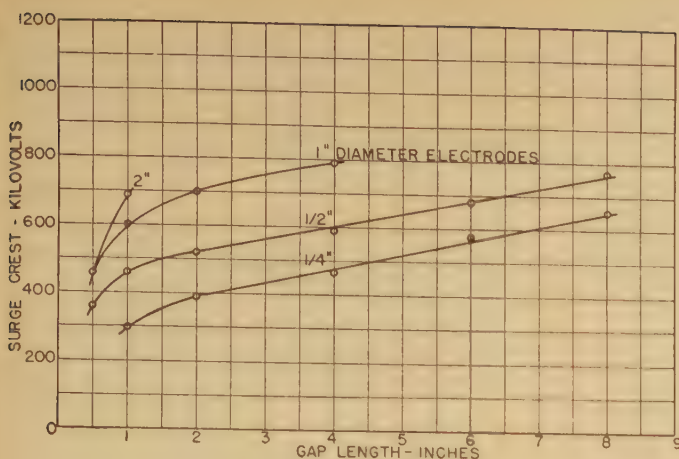 1200
1000
800
600
400
200
0
SURGE CREST - KILOVOLTS
2"
1" DIAMETER ELECTRODES
1/2"
1/4"
1 2 3 4 5 6 7 8 9
GAP LENGTH - INCHES